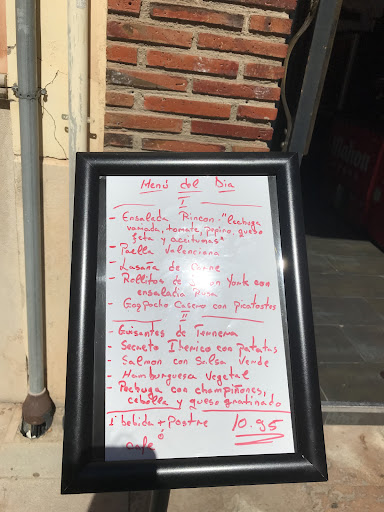 Menú del Dia
I
- Ensalada Rincon "lechuga
variada, tomate, pepino, queso
feta y aceitumas"
- Paella Valenciana
- Lasaña de Carne
- Rollitos de York con
ensaladia Rusa
- Gazpacho Casero con picatostes
II
- Guisantes de Ternera
- Secreto Iberico con patatas
- Salmon con Salsa Verde
- Hamburguesa Vegetal
- Pechuga con champiñones,
cebolla y queso gratinado
1 bebida + postre 10.95
ó
cafe